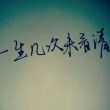 一生几次来看清